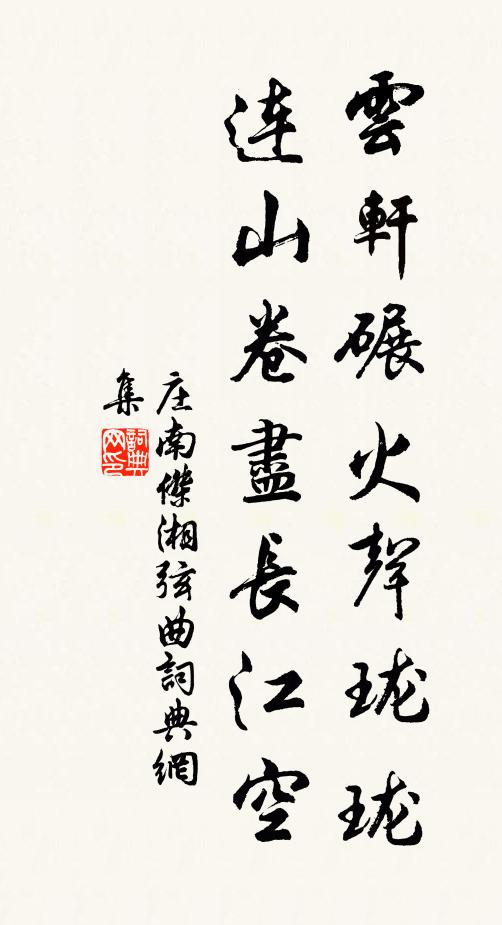 雲軒碾火聲珑珑
连山卷盡長江空
庄南傑湘弦曲詞典網
集
詞典
网印